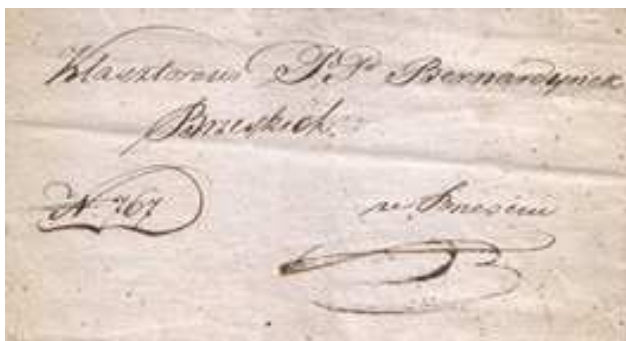 Klasztorowi P.P. Bernardynek
Brzeskich.
N. 767
w Brześciu